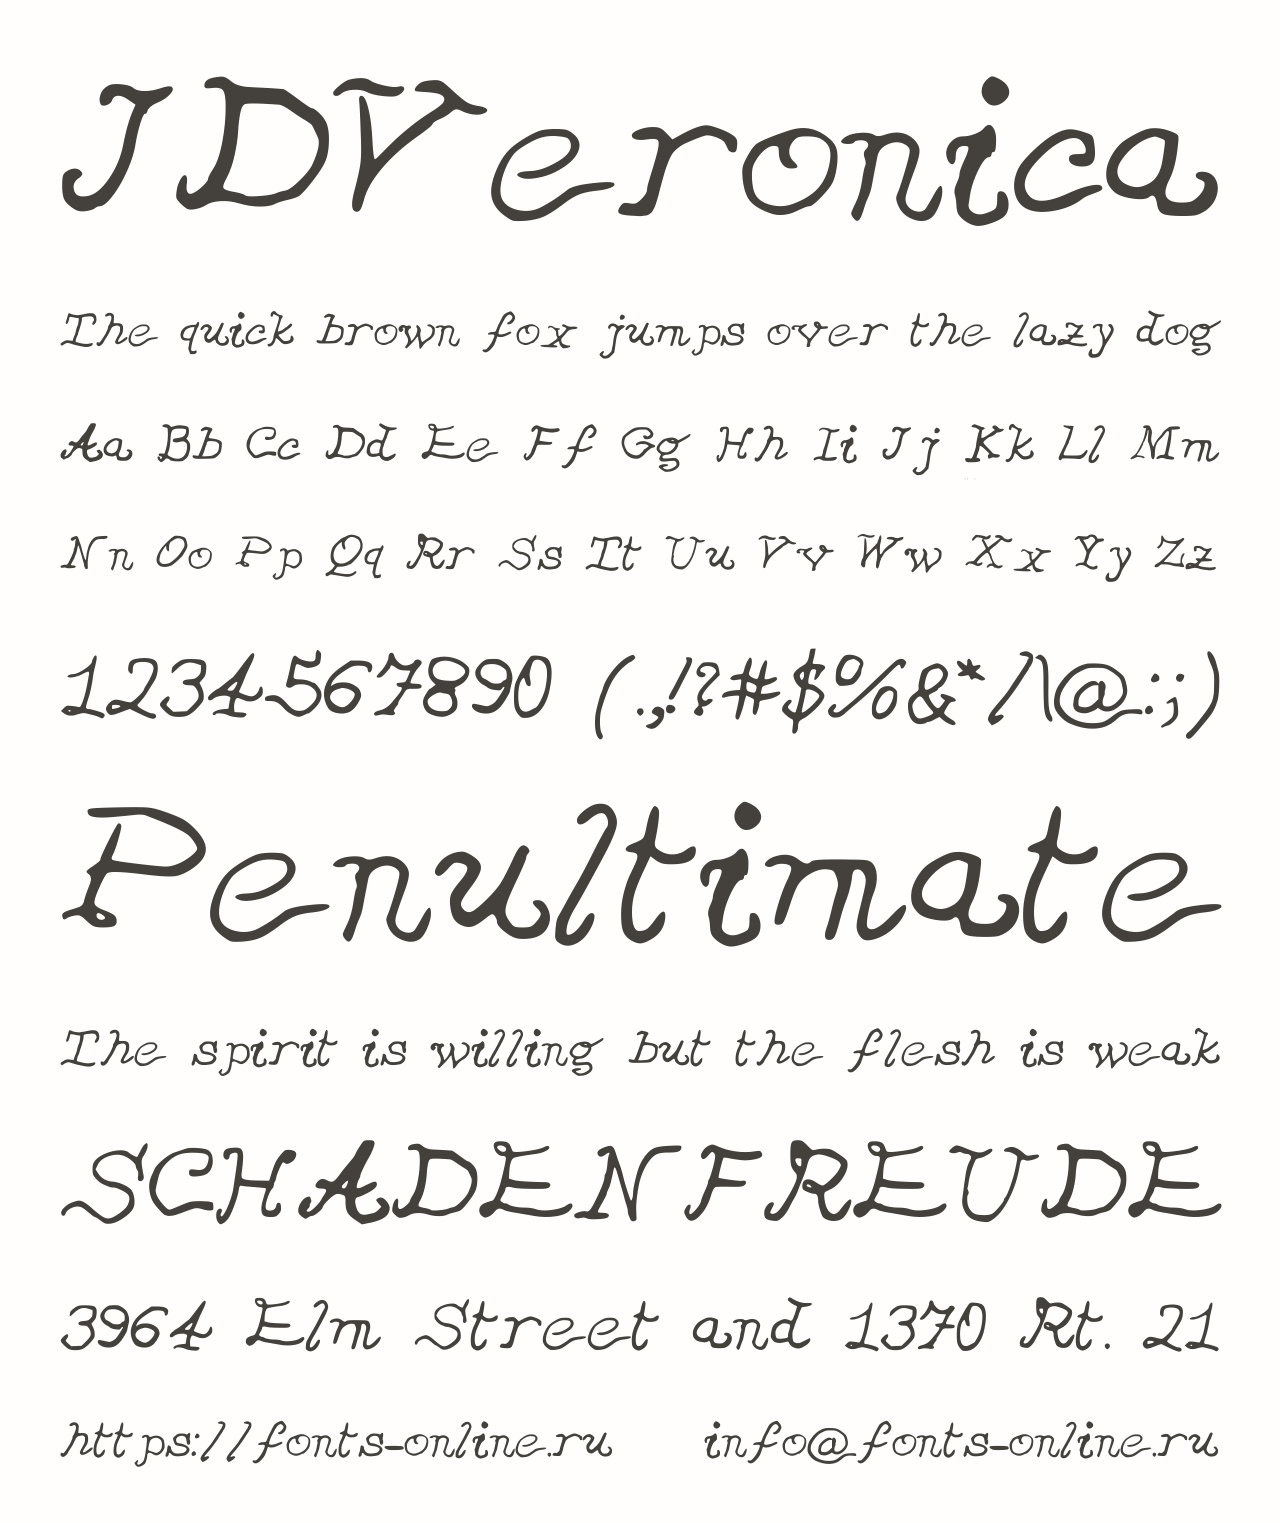 JDVeronica
The quick brown fox jumps over the lazy dog
Aa Bb Cc Dd Ee Ff Gg Hh Ii Jj Kk Ll Mm
Nn Oo Pp Qq Rr Ss Tt Uu Vv Ww Xx Yy Zz
1234567890 (.,!?#$%&*/\@:;)
Penultimate
The spirit is willing but the flesh is weak
SCHADENFREUDE
3964 Elm Street and 1370 Rt. 21
https://fonts-online.ru info@fonts-online.ru